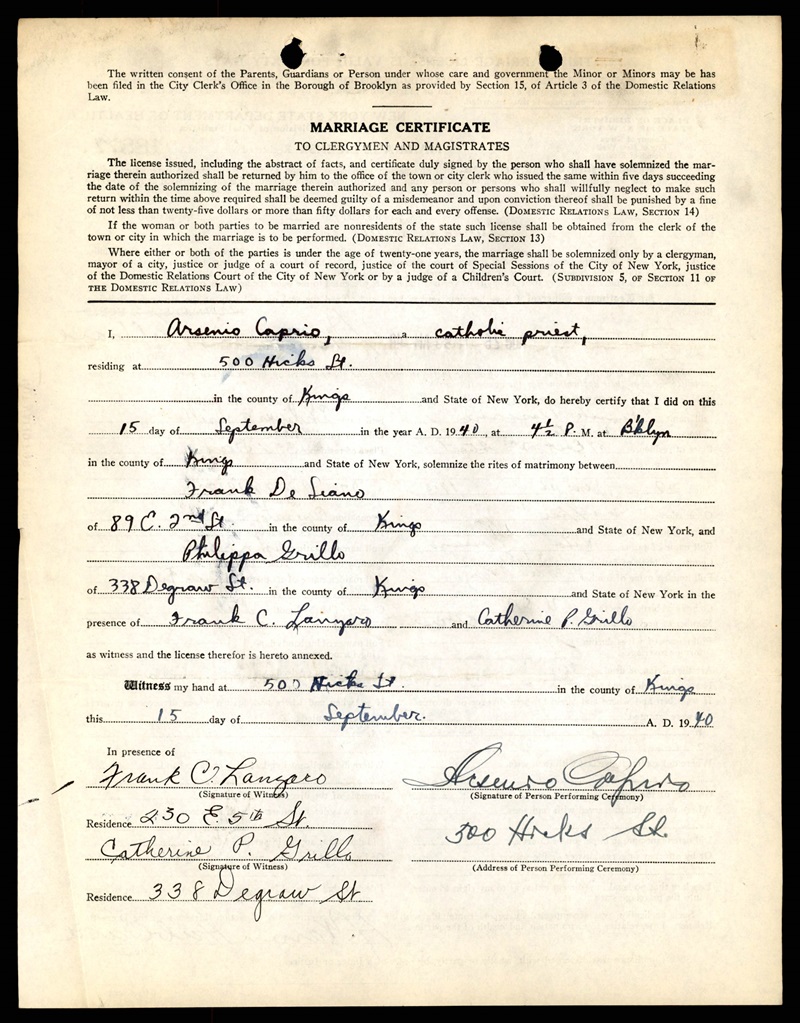 The written consent of the Parents, Guardians or Person under whose care and government the Minor or Minors may be has
been filed in the City Clerk's Office in the Borough of Brooklyn as provided by Section 15, of Article 3 of the Domestic Relations
Law.
MARRIAGE CERTIFICATE
TO CLERGYMEN AND MAGISTRATES
The license issued, including the abstract of facts, and certificate duly signed by the person who shall have solemnized the mar-
riage therein authorized shall be returned by him to the office of the town or city clerk who issued the same within five days succeeding
the date of the solemnizing of the marriage therein authorized and any person or persons who shall willfully neglect to make such
return within the time above required shall be deemed guilty of a misdemeanor and upon conviction thereof shall be punished by a fine
of not less than twenty-five dollars or more than fifty dollars for each and every offense. (DOMESTIC RELATIONS LAW, SECTION 14)
If the woman or both parties to be married are nonresidents of the state such license shall be obtained from the clerk of the
town or city in which the marriage is to be performed. (DOMESTIC RELATIONS LAW, SECTION 13)
Where either or both of the parties is under the age of twenty-one years, the marriage shall be solemnized only by a clergyman,
mayor of a city, justice or judge of a court of record, justice of the court of Special Sessions of the City of New York, justice
of the Domestic Relations Court of the City of New York or by a judge of a Children's Court. (SUBDIVISION 5, OF SECTION 11 OF
THE DOMESTIC RELATIONS LAW)
I, Arsenio Caprio, a catholic priest,
residing at 500 Hicks St.
in the county of Kings and State of New York, do hereby certify that I did on this
15 day of September in the year A. D. 1940, at 4½ P. M. at B'klyn
in the county of Kings and State of New York, solemnize the rites of matrimony between
Frank De Siano
of 89 E. 2nd St. in the county of Kings and State of New York, and
Philippa Grillo
of 338 Degraw St. in the county of Kings and State of New York in the
presence of Frank C. Lanzaro and Catherine P. Grillo
as witness and the license therefor is hereto annexed.
Witness my hand at 500 Hicks St. in the county of Kings
this 15 day of September. A. D. 1940
In presence of
Frank C. Lanzaro Arsenio Caprio
(Signature of Witness) (Signature of Person Performing Ceremony)
Residence 230 E. 5th St. 500 Hicks St.
Catherine P. Grillo
(Signature of Witness) (Address of Person Performing Ceremony)
Residence 338 Degraw St